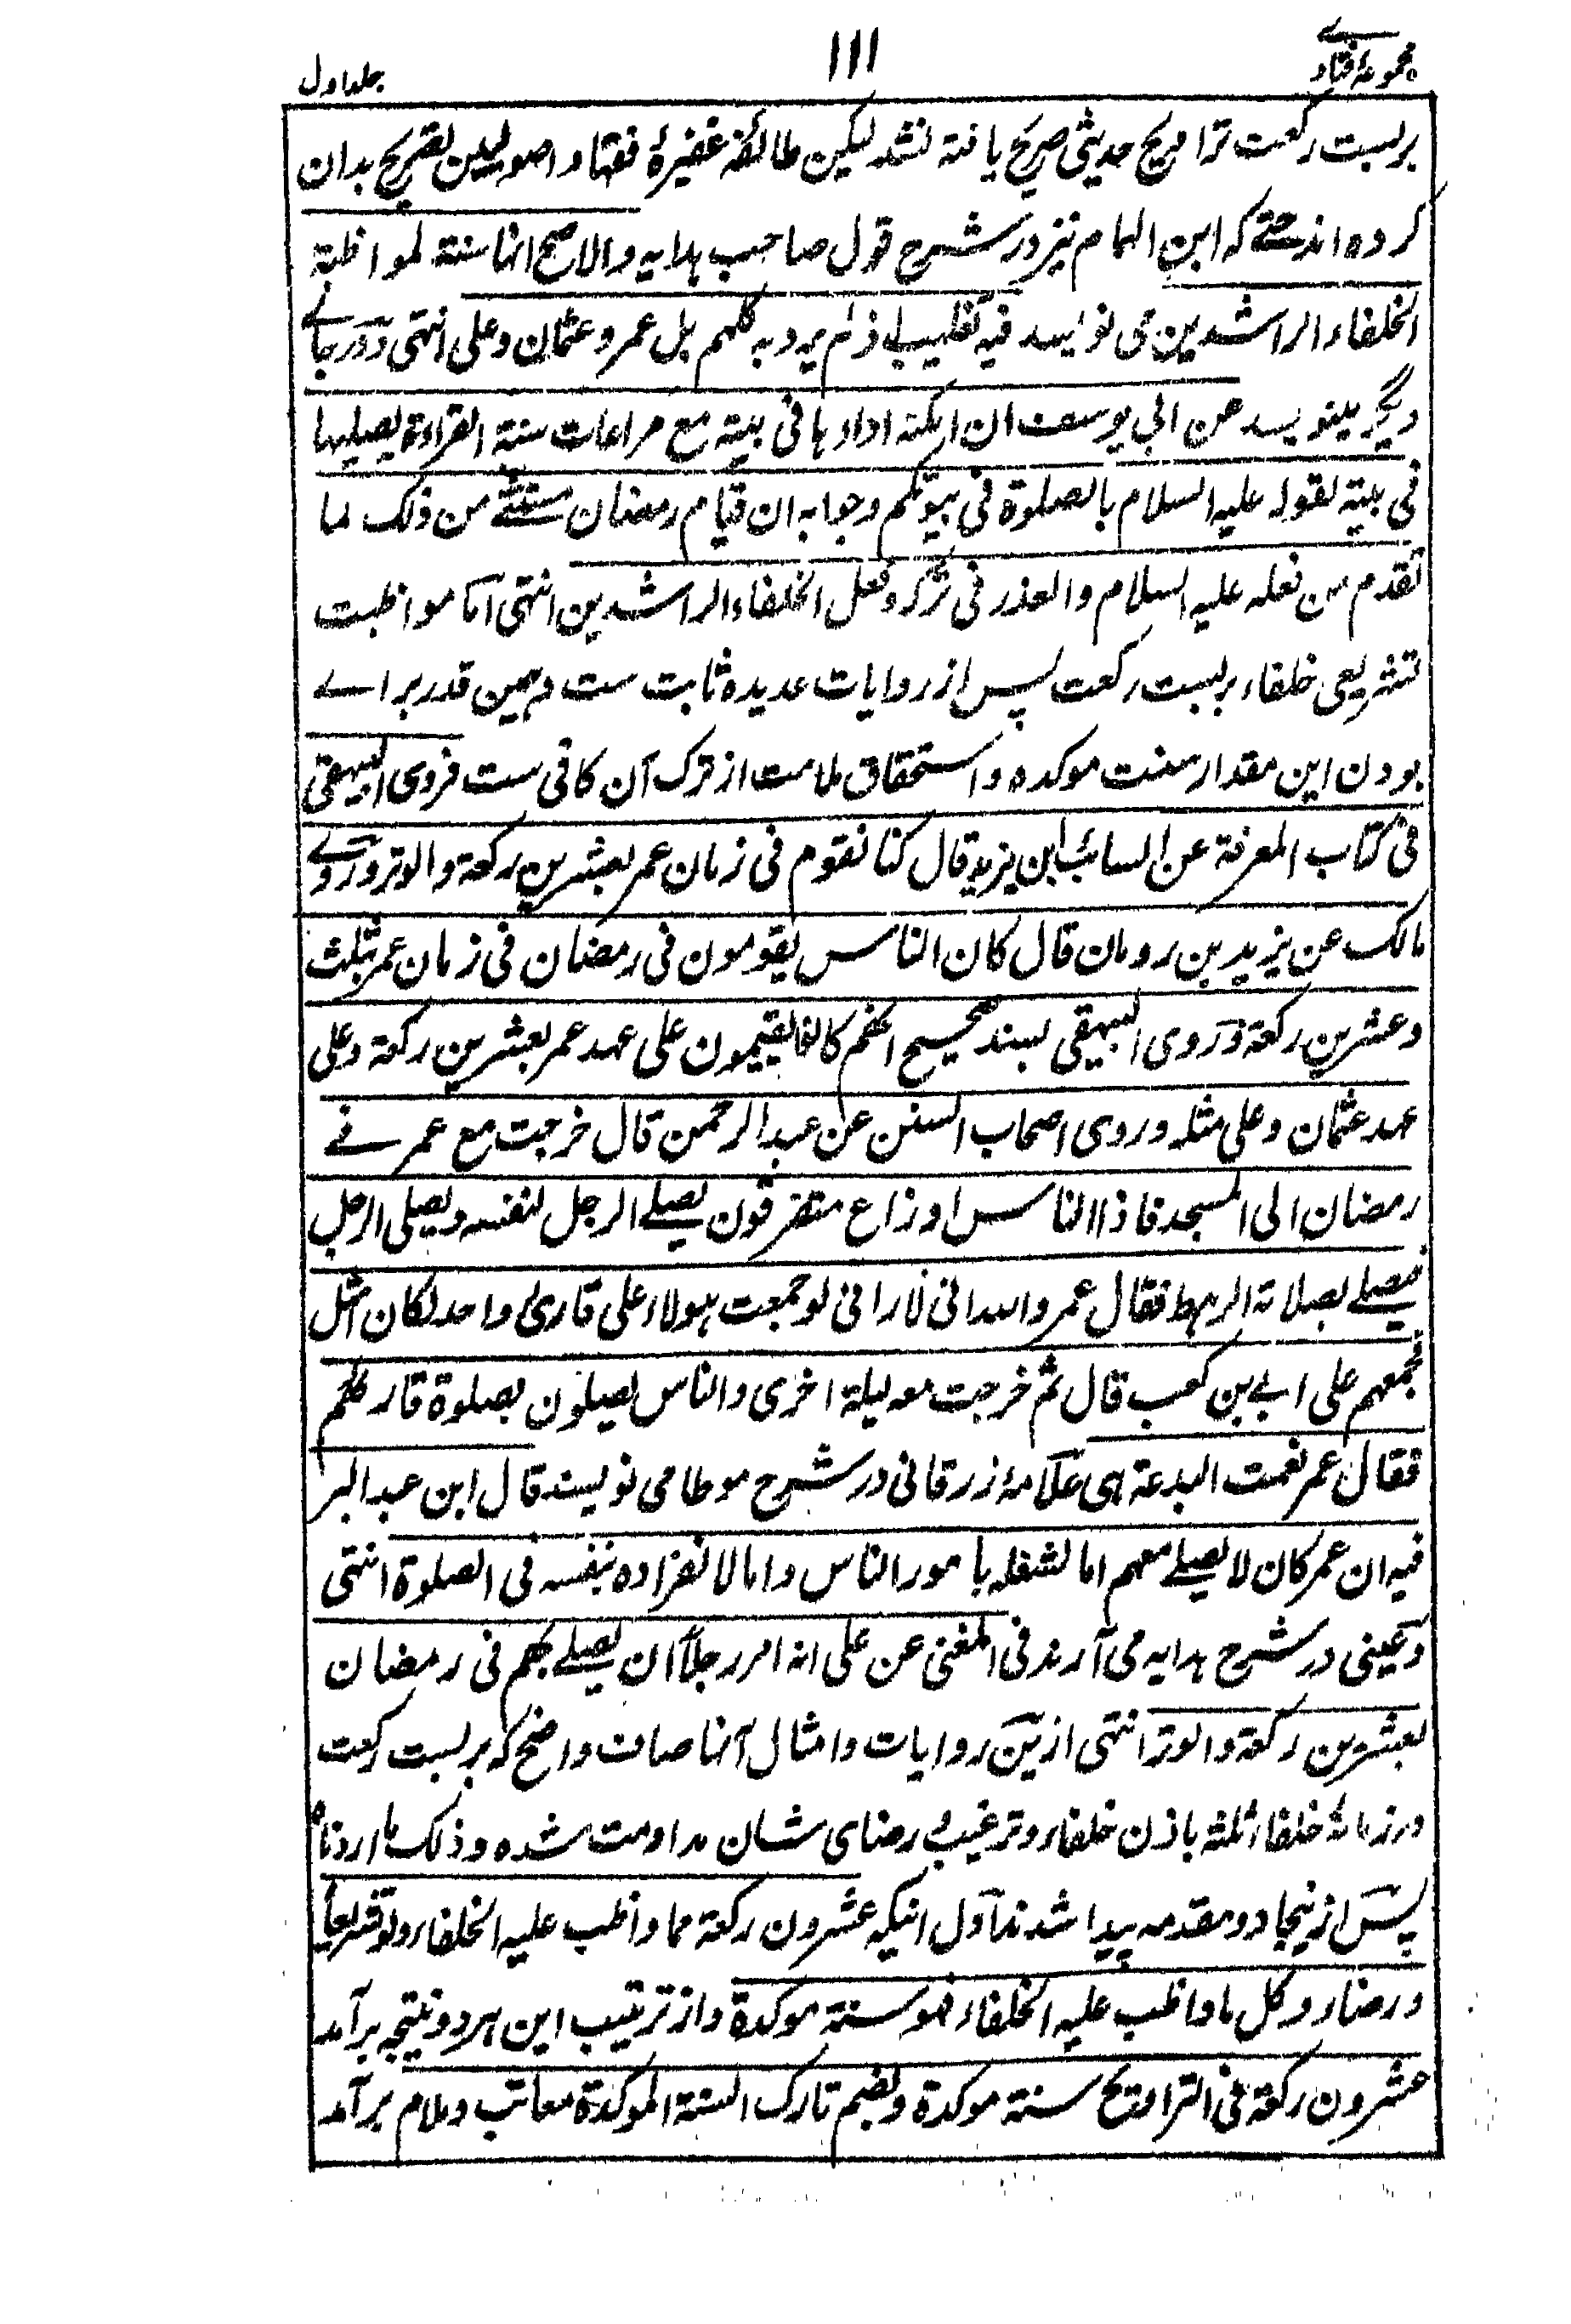 مجموعۂ فتاوے
۱۱۱
جلد اول
بر بست رکعت تراویح حدیثی صریح یافته نشد لیکن طائفۂ غفیرۂ فقها و اصولیین تصریح بدان
کرده اند حتے که ابن الهمام نیز در شرح قول صاحب هدایه والاصح انها سنة لمواظبة
الخلفاء الراشدین می نویسد فیه تغلیب اذ لم یرد به کلهم بل عمر و عثمان و علی انتهی و در جاے
دیگر مینویسد عن ابی یوسف ان امکنه اداؤها فی بیته مع مراعات سنة القراءة یصلیها
فی بیته لقوله علیه السلام بالصلوة فی بیوتکم وجوابه ان قیام رمضان مستثنے من ذلک لما
تقدم من فعله علیه السلام والعذر فی ترکه وفعل الخلفاء الراشدین انتهی اما مواظبت
تشریعی خلفاء بر بست رکعت پس از روایات عدیده ثابت ست و همین قدر براے
بودن این مقدار سنت موکده و استحقاق ملامت از ترک آن کافی ست فروی البیهقی
فی کتاب المعرفة عن السائب ابن یزید قال کنا نقوم فی زمان عمر بعشرین رکعة والوتر وروے
مالک عن یزید بن رومان قال کان الناس یقومون فی رمضان فی زمان عمر بثلث
وعشرین رکعة وروی البیهقی بسند صحیح انهم کانوا یقیمون علی عهد عمر بعشرین رکعة وعلی
عهد عثمان وعلی مثله وروی اصحاب السنن عن عبد الرحمن قال خرجت مع عمر فے
رمضان الی المسجد فاذا الناس اوزاع متفرقون یصلے الرجل لنفسه ویصلی الرجل
فیصلے بصلاته الرهط فقال عمر والله انی لارانی لو جمعت هؤلاء علی قاری واحد لکان امثل
فجمعهم علی ابی بن کعب قال ثم خرجت معه لیلة اخری والناس یصلون بصلوة قارئهم
فقال عمر نعمت البدعة هی علامۂ زرقانی در شرح موطا می نویسد قال ابن عبد البر
فیه ان عمر کان لا یصلے معهم اما لشغله بامور الناس واما لانفراده بنفسه فی الصلوة انتهی
و عینی در شرح هدایه می آرند فی المغنی عن علی انه امر رجلاً ان یصلے بهم فی رمضان
بعشرین رکعة والوتر انتهی ازین روایات و امثال آنها صاف واضح که بر بست رکعت
در زمانۂ خلفاء ثلثه باذن خلفاء و ترغیب و رضای شان مداومت شده وذلک ما اردناه
پس ازینجا دو مقدمه پیدا شدند اول اینکه عشرون رکعة مما واظب علیه الخلفاء ولو تشریعاً
ورضاء وکل ما واظب علیه الخلفاء فهو سنة موکدة و از ترتیب این هر دو نتیجه برآمد
عشرون رکعة فی التراویح سنة موکدة وبضم تارک السنة الموکدة معاتب وملام برآمد